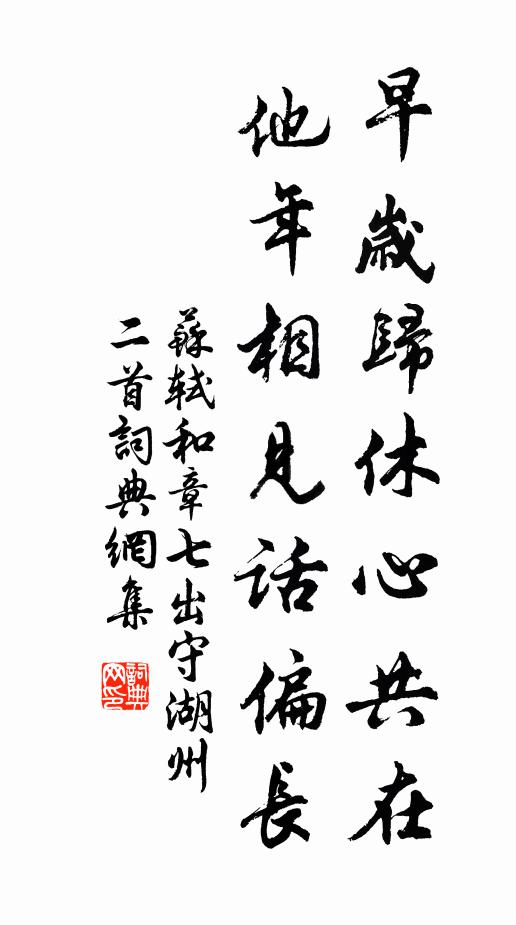 早歲歸休心共在
他年相見話偏長
蘇軾和章七出守湖州
二首詞典網集
詞典網印